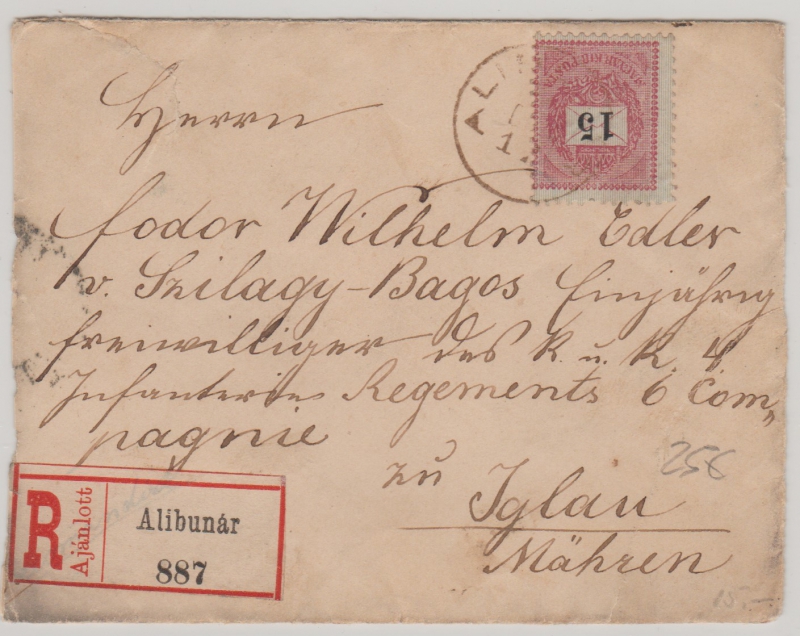 Herrn
fodor Wilhelm Edler
v. Szilagy-Bagos Einjährig
freiwilliger des k. u. k. 4
Infanterie Regements 6 Com-
pagnie
zu
Iglau
Mähren
ALI
1
MAGYAR KIR. POSTA
15
R
Ajánlott
Alibunár
887
256
15.-